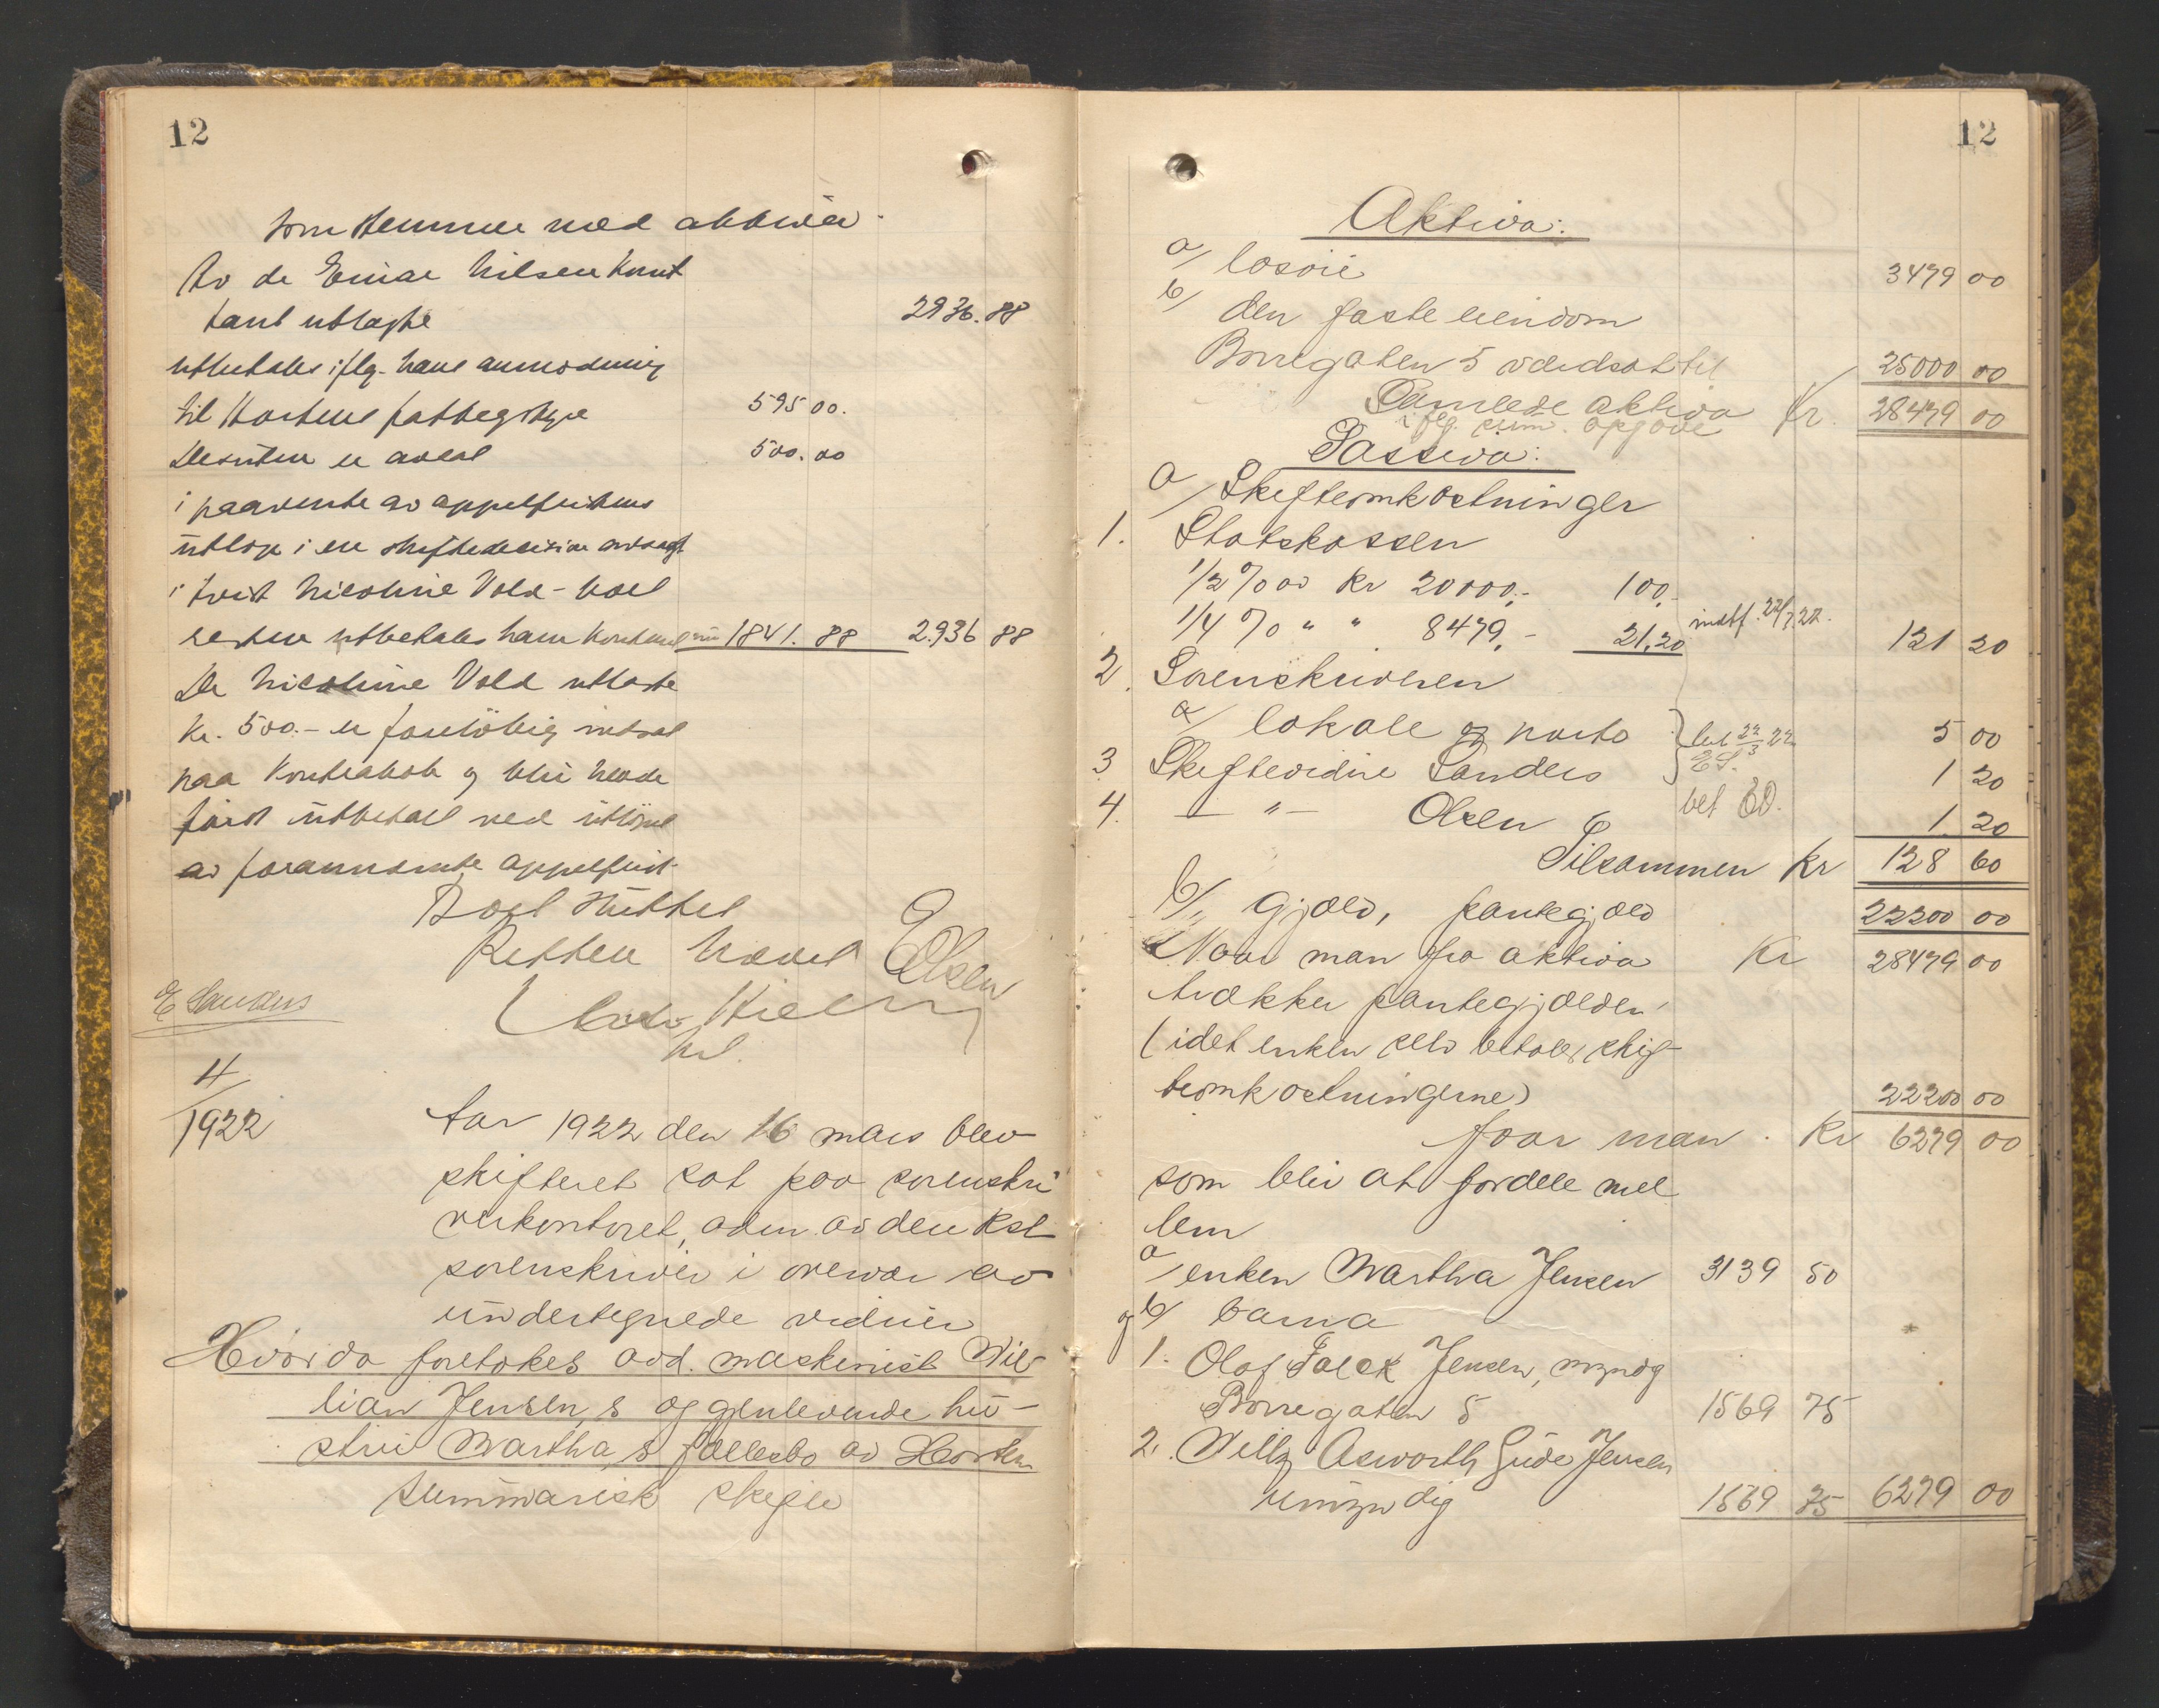 12
som stemmer med aktiva.
Av de Einar Nilsen kont
tant utlagte 2936.88
utbetales iflg. hans anmodning
til Hortens fattegstyre 595 00.
Desuten er avsat 500.00
i paavente av appelfristens
utløp i en skiftedecision avsagt
i tvist Nicoline Vold - boet
resten utbetales ham kontant 1841.88 2936 88
De Nicoline Vold utlagte
Kr. 500.- er foreløbig indsat
paa Kontrabok og blir hende
først utbetalt ved utløpet
av forannevnte appelfrist.
Boet sluttet
Retten hævet
E Olsen
E Sanders
4/1922
Aar 1922 den 16 mars blev
skifteret sat paa sorenskri
verkontoret, adm. av den kst
sorenskriver i nærvær av
undertegnede vidner
Hvorda foretokes avd. maskinist Wil-
lian Jensen,s og gjenlevende hu-
stru Martha,s fællesbo av Horten
summarisk skifte
12
Aktiva:
a/ løsøre 3479 00
b/ den faste eiendom
Borregaten 5 værdsat til 25000 00
Samlede aktiva Kr. 28479 00
iflg. sum. opgave
Passiva:
a/ Skifteomkostninger
1. Statskassen
1/2 % av Kr 20000,- 100,-
1/4 % " " 8479,- 21,20 indbf. 22/3 22. 121 20
2. Sorenskriveren
a/ lokale og porto } bet 22/3 22 5 00
3 Skiftevidne Sanders E S. 1 20
4. — " — Olsen bet EO. 1 20
Tilsammen Kr 128 60
b/ Gjæld, pantegjæld 22200 00
Naar man fra aktiva Kr 28479 00
trækker pantegjælden
(idet enken selv betaler skif-
teomkostningerne) 22200 00
faar man. Kr 6279 00
som blir at fordele mel
lem
a/ enken Martha Jensen 3139 50
og b/ barna
1. Olaf Falck Jensen, myndg
Borregaten 5 1569 75
2. Willy Asworth Gude Jensen
umyndig 1569 75 6279 00